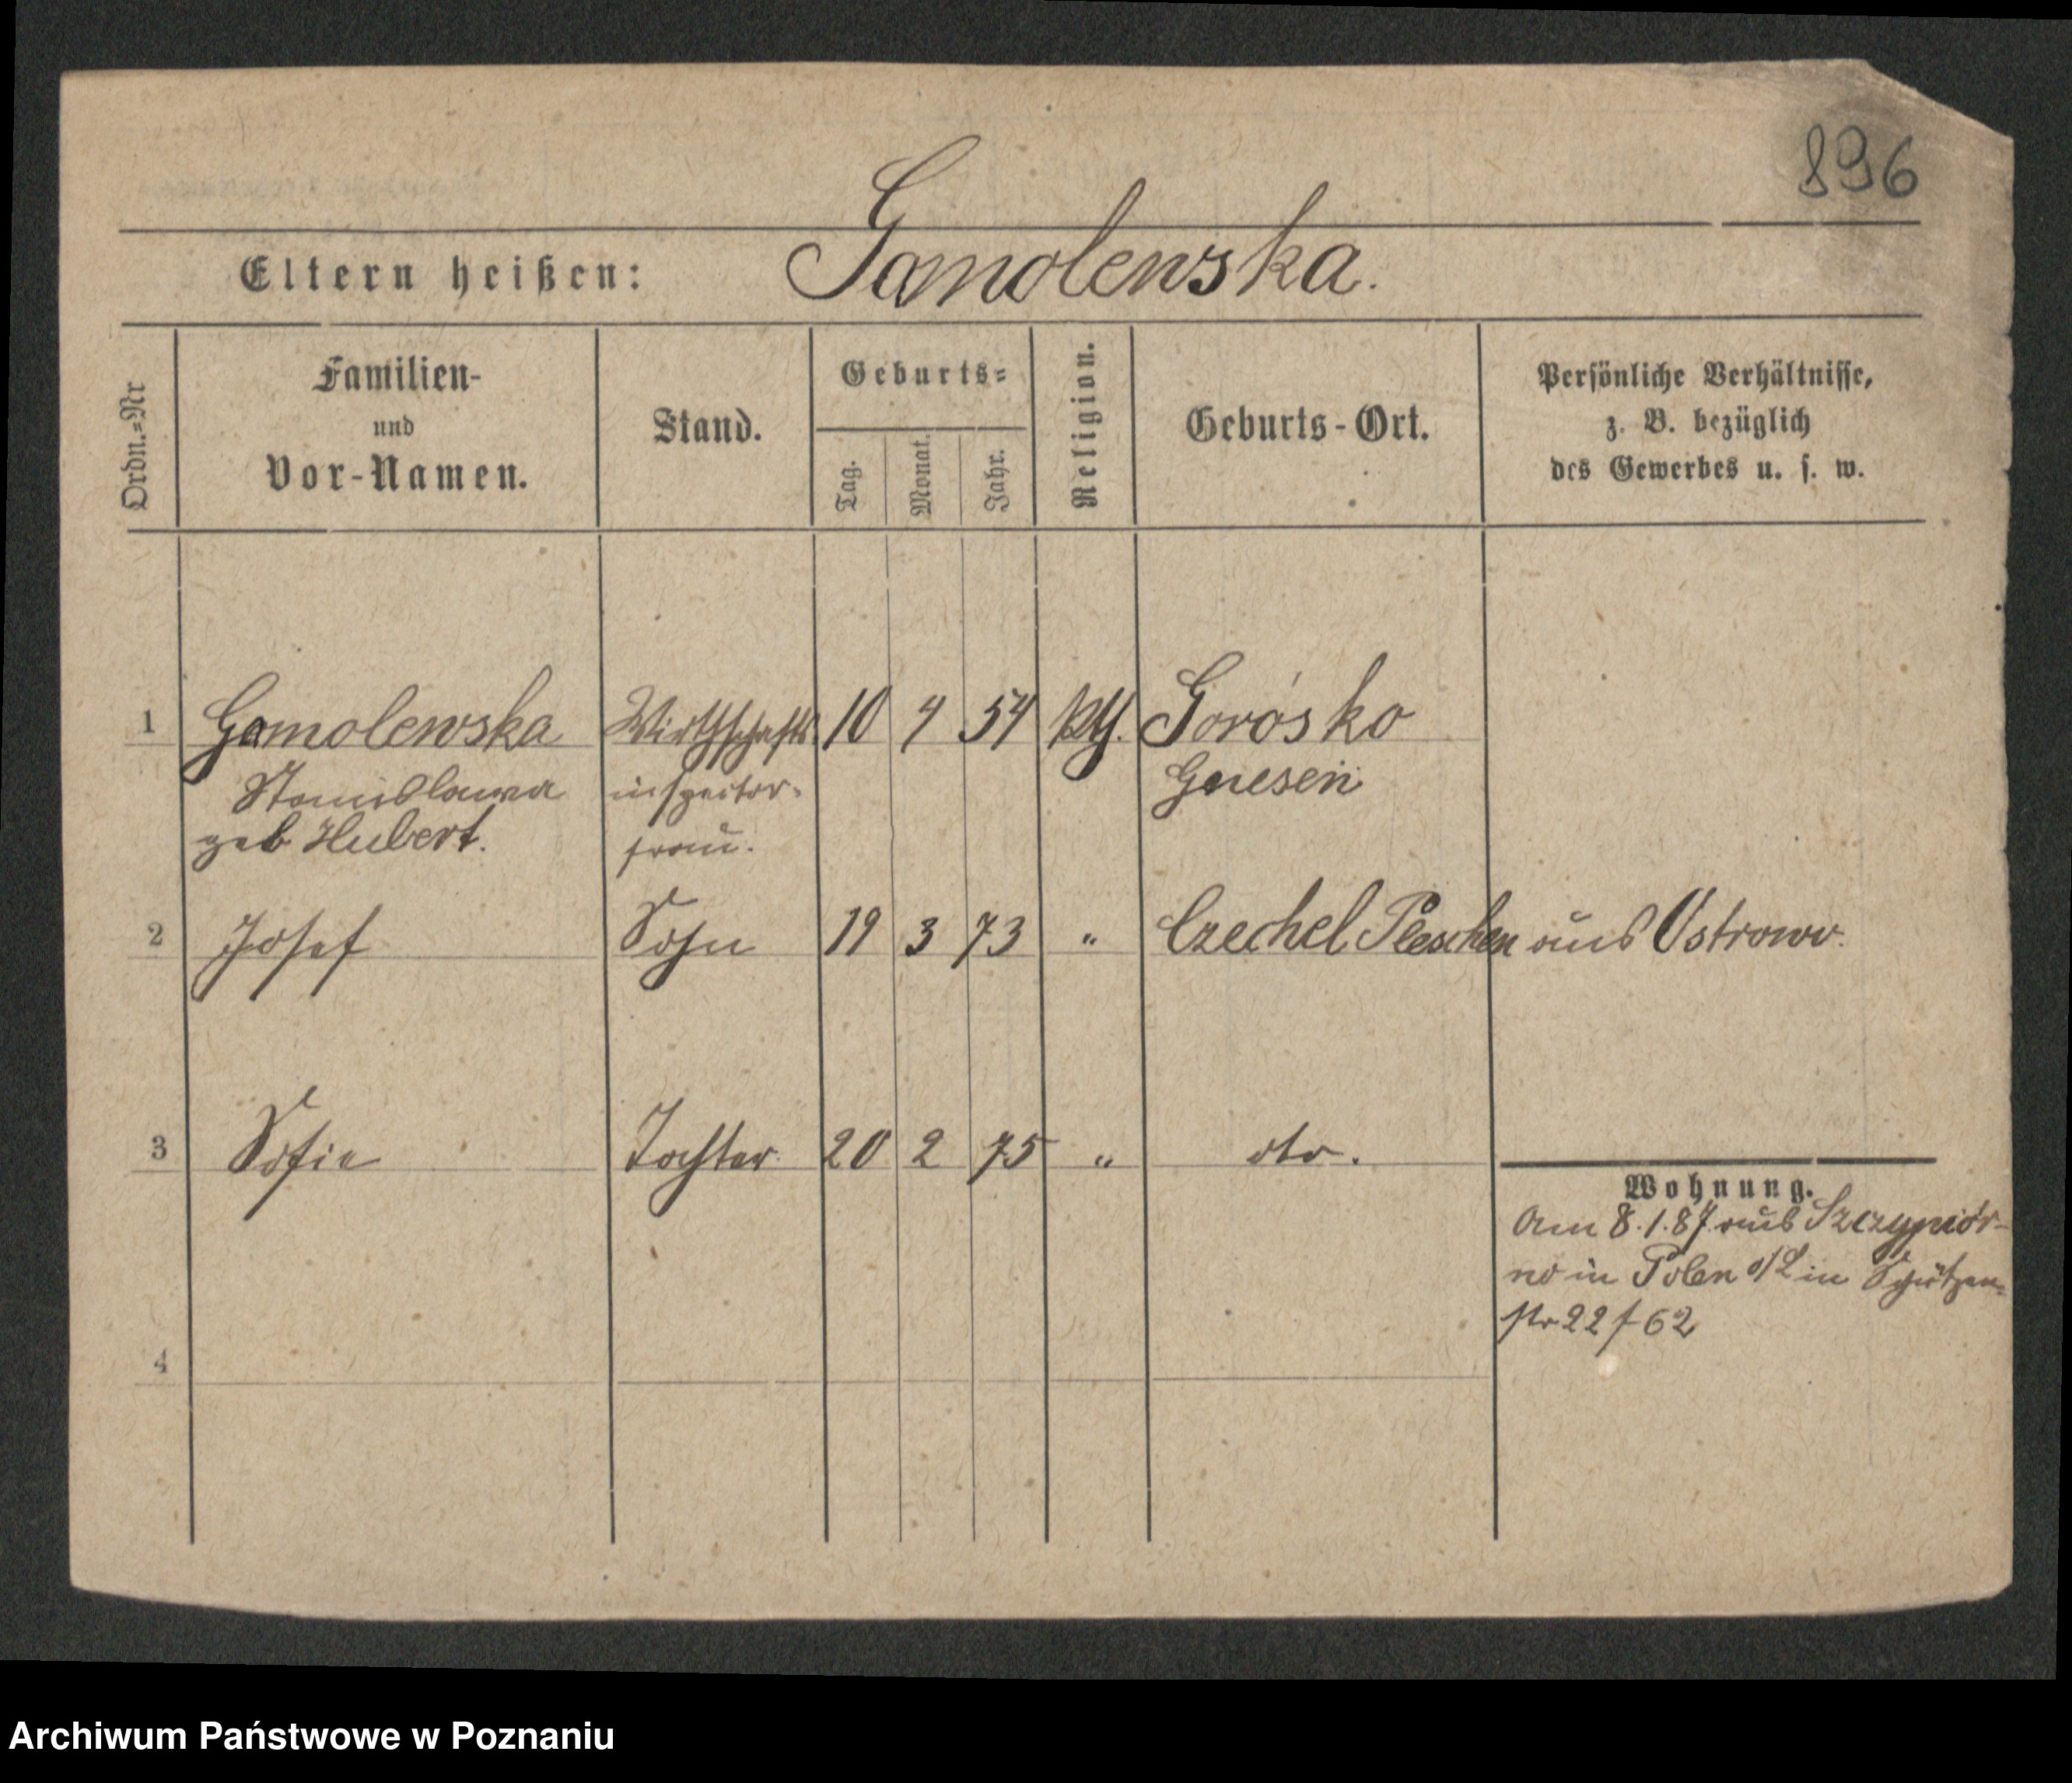 896
Eltern heißen: Gamolewska.
Ordn.=Nr
Familien-
und
Vor-Namen.
Stand.
Geburts=
Tag.
Monat.
Jahr.
Religion.
Geburts-Ort.
Persönliche Verhältnisse,
z. B. bezüglich
des Gewerbes u. s. w.
1 Gamolewska Wirthschafts 10 4 54 kth. Gorósko
Stanislawa inspector- Gnesen
geb Hubert. frau.
2 Josef Sohn 19 3 73 " Czechel Pleschen aus Ostrowo.
3 Sofie Tochter 20 2 75 " dto.
Wohnung.
Am 8.1.87 aus Szczypiór-
no in Polen in Schützen-
str 22 f 62
4
Archiwum Państwowe w Poznaniu